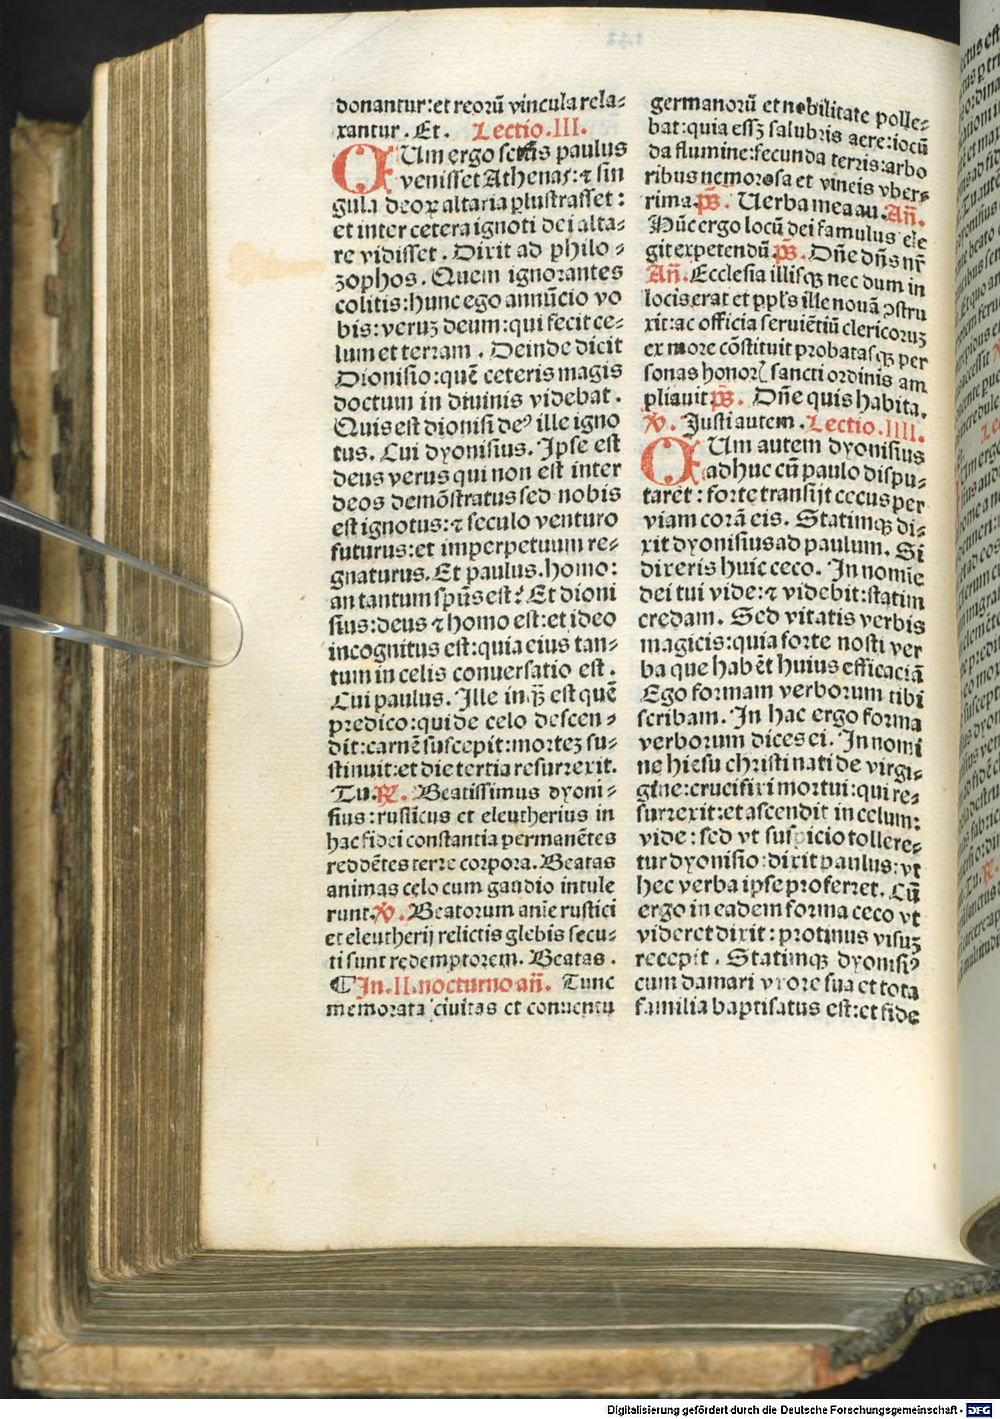 donantur:et reorū vincula rela⸗
xantur . Et. Lectio.III.
CUm ergo sctūs paulus
venisset Athenas:⁊ sin
gula deoꝝ altaria ꝑlustrasset :
et inter cetera ignoti dei alta⸗
re vidisset . Dixit ad philo⸗
zophos. Quem ignorantes
colitis:hunc ego annūcio vo
bis:veruꝫ deum:qui fecit ce⸗
lum et terram . Deinde dicit
Dionisio:quē ceteris magis
doctum in diuinis videbat .
Quis est dionisi deꝰ ille igno
tus. Cui dyonisius. Ipse est
deus verus qui non est inter
deos demōstratus sed nobis
est ignotus:⁊ seculo venturo
futurus:et imperpetuum re⸗
gnaturus. Et paulus.homo:
an tantum spūs est? Et dioni
sius:deus ⁊ homo est:et ideo
incognitus est:quia eius tan⸗
tum in celis conuersatio est .
Cui paulus. Ille inq̄ꝫ est quē
predico:qui de celo descen⸗
dit:carnē suscepit:morteꝫ su⸗
stinuit:et die tertia resurrexit.
Tu.℟. Beatissimus dyoni⸗
sius:rusticus et eleutherius in
hac fidei constantia permanētes
reddētes terre corpora. Beatas
animas celo cum gaudio intule
runt.℣. Beatorum anie rustici
et eleutherij relictis glebis secu⸗
ti sunt redemptorem. Beatas .
¶In.II.nocturno an̄. Tunc
memorata ciuitas et conuentu
germanorū et nobilitate polle⸗
bat:quia essꝫ salubris aere:iocū
da flumine:fecunda terris:arbo
ribus nemorosa et vineis vber⸗
rima.p̄s. Uerba mea au. An̄.
Hūc ergo locū dei famulus ele
git expetendū p̄s. Dn̄e dn̄s nr̄
An̄. Ecclesia illisqꝫ nec dum in
locis erat et ppl's ille nouā ꝯstru
xit:ac officia seruiētiū clericoruꝫ
ex more cōstituit probatasqꝫ per
sonas honorꝭ sancti ordinis am
pliauit p̄s. Dn̄e quis habita.
℣. Justi autem . Lectio.IIII.
CUm autem dyonisius
adhuc cū paulo dispu⸗
taret : forte transijt cecus per
viam corā eis. Statimqꝫ di⸗
xit dyonisius ad paulum. Si
dixeris huic ceco. In nomīe
dei tui vide:⁊ videbit:statim
credam. Sed vitatis verbis
magicis:quia forte nosti ver
ba que habēt huius efficaciā
Ego formam verborum tibi
scribam. In hac ergo forma
verborum dices ei. In nomi
ne hiesu christi nati de virgi⸗
gīne:crucifixi mortui:qui re⸗
surrexit:et ascendit in celum:
vide : sed vt suspicio tollere⸗
tur dyonisio:dixit paulus:vt
hec verba ipse proferret. Cū
ergo in eadem forma ceco vt
videret dixit : protinus visuꝫ
recepit . Statimqꝫ dyonisiꝰ
cum damari vxore sua et tota
familia baptisatus est:et fide
Digitalisierung gefördert durch die Deutsche Forschungsgemeinschaft - DFG